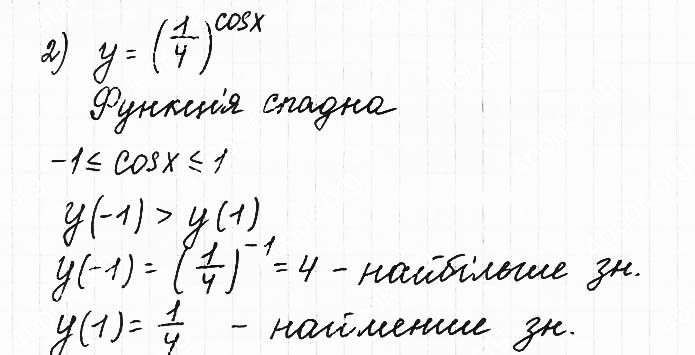 2) y = (1/4)^cosx
Функція спадна
-1 ≤ cosx ≤ 1
y(-1) > y(1)
y(-1) = (1/4)^-1 = 4 - найбільше зн.
y(1) = 1/4 - найменше зн.